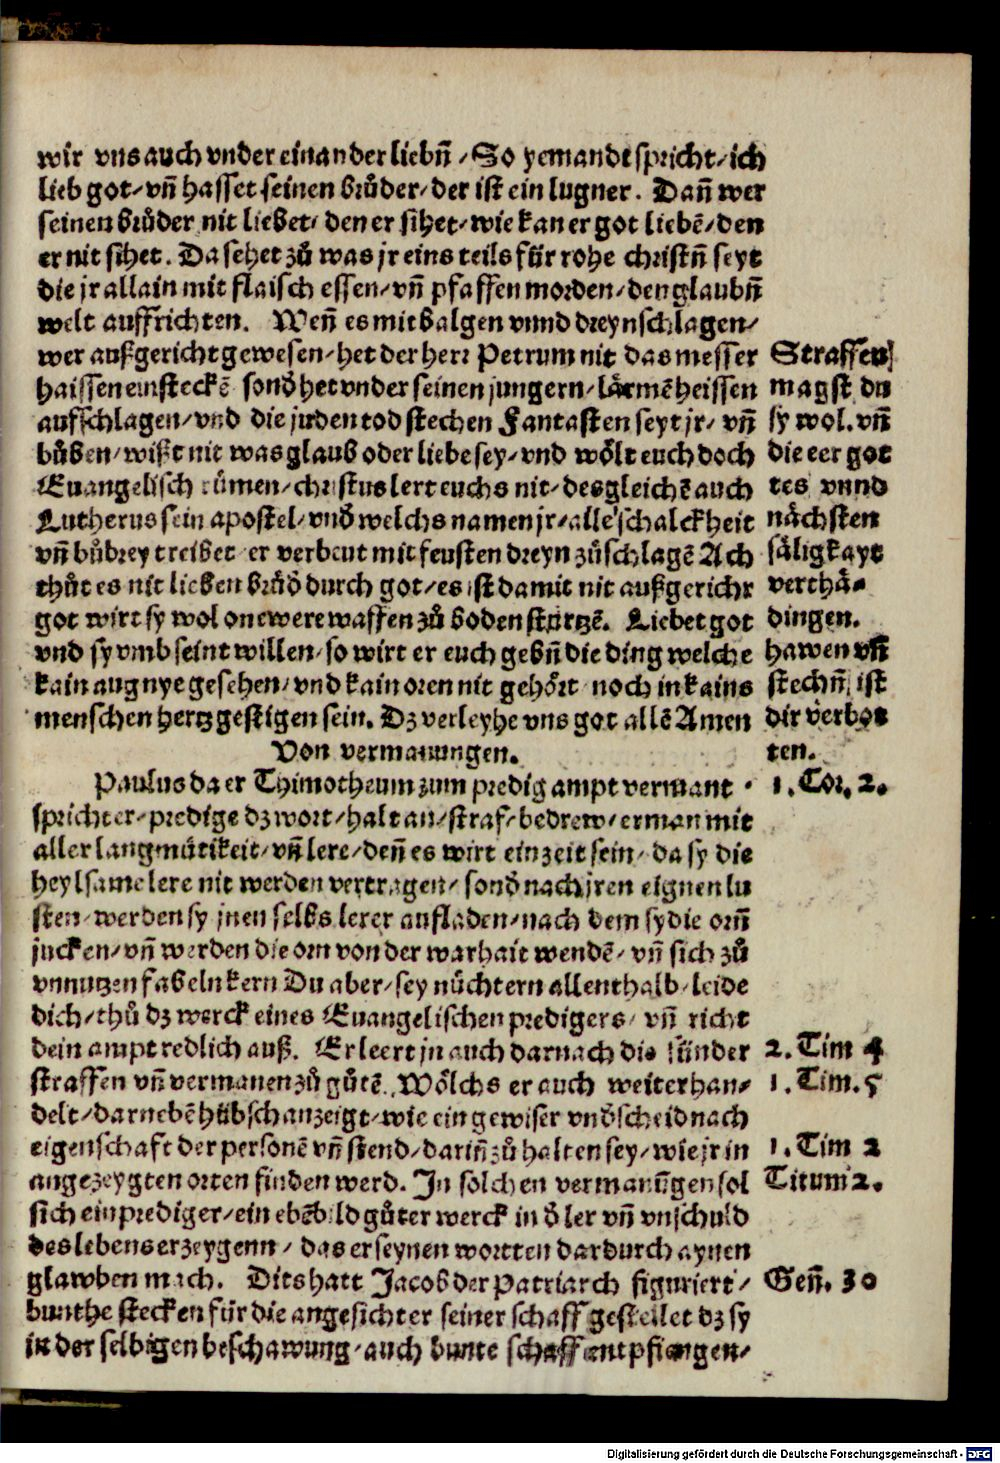 wir vns auch vnder einander liebn̄ / So yemandt spricht / ich
lieb got / vn̄ hasset seinen brůder / der ist ein lugner. Dan̄ wer
seinen brůder nit liebet / den er sihet / wie kan er got liebē / den
er nit sihet. Da sehet zů was jr eins teils für rohe christn̄ seyt
die jr allain mit flaisch essen / vn̄ pfaffen morden / den glaubn̄
welt auffrichten. Wen̄ es mit balgen vnnd dreynschlagen /
wer außgericht gewesen / het der herr Petrum nit das messer
haissen einsteckē sonð het vnder seinen jungern / lärmē heissen
aufschlagen / vnd die juden tod stechen Fantasten seyt jr / vn̄
bůben / wißt nit was glaub oder liebe sey / vnd wölt euch doch
Euangelisch rümen / christus lert euchs nit / desgleichē auch
Lutherus sein apostel / vnð welchs namen jr / alle schalckheit
vn̄ bůbrey treibet er verbeut mit feusten dreyn zůschlagē Ach
thůt es nit lieben brůð durch got / es ist damit nit außgericht
got wirt sy wol one were waffen zů boden stürtzē. Liebet got
vnd sy vmb seint willen / so wirt er euch gebn̄ die ding welche
kain aug nye gesehen / vnd kain oren nit gehört noch in kains
menschen hertz gestigen sein. Dz verleyhe vns got allē Amen
Straffen
magst du
sy wol. vn̄
die eer got
tes vnnd
nächsten
säligkayt
verthä-
dingen.
hawen vn̄
stechn̄ ist
dir verbot
ten.
Von vermanungen.
Paulus da er Thimotheum zum predig ampt vermant
1. Cor. 2.
spricht er / predige dz wort / halt an / straf / bedrew / erman mit
aller langmütikeit / vn̄ lere / den̄ es wirt ein zeit sein / da sy die
heylsame lere nit werden vertragen / sonð nach jren eignen lu
sten / werden sy jnen selbs lerer aufladen / nach dem sy die orn̄
jucken / vn̄ werden die orn von der warhait wendē / vn̄ sich zů
vnnutzen fabeln kern Du aber / sey nüchtern allenthalb / leide
dich / thů dz werck eines Euangelischen predigers / vn̄ richt
dein ampt redlich auß. Er leert jn auch darnach die sünder
2. Tim 4
straffen vn̄ vermanen zů gůtē. Wölchs er auch weiter han-
1. Tim. 5
delt / darnebē hübsch anzeigt / wie ein gewiser vnðscheid nach
eigenschaft der personē vn̄ stend / darin̄ zů halten sey / wie jr in
1. Tim 2
angezeygten orten finden werd. In solchen vermanūgen sol
Titum 2.
sich ein prediger / ein ebēbild gůter werck in ð ler vn̄ vnschuld
des lebens erzeygenn / das er seynen wortten dardurch aynen
glawben mach. Dits hatt Jacob der Patriarch figuriert /
Gen̄. 30
bunthe stecken für die angesichter seiner schaff gestellet dz sy
in der selbigen beschawung / auch bunte schaff entpfiengen /
Digitalisierung gefördert durch die Deutsche Forschungsgemeinschaft - DFG